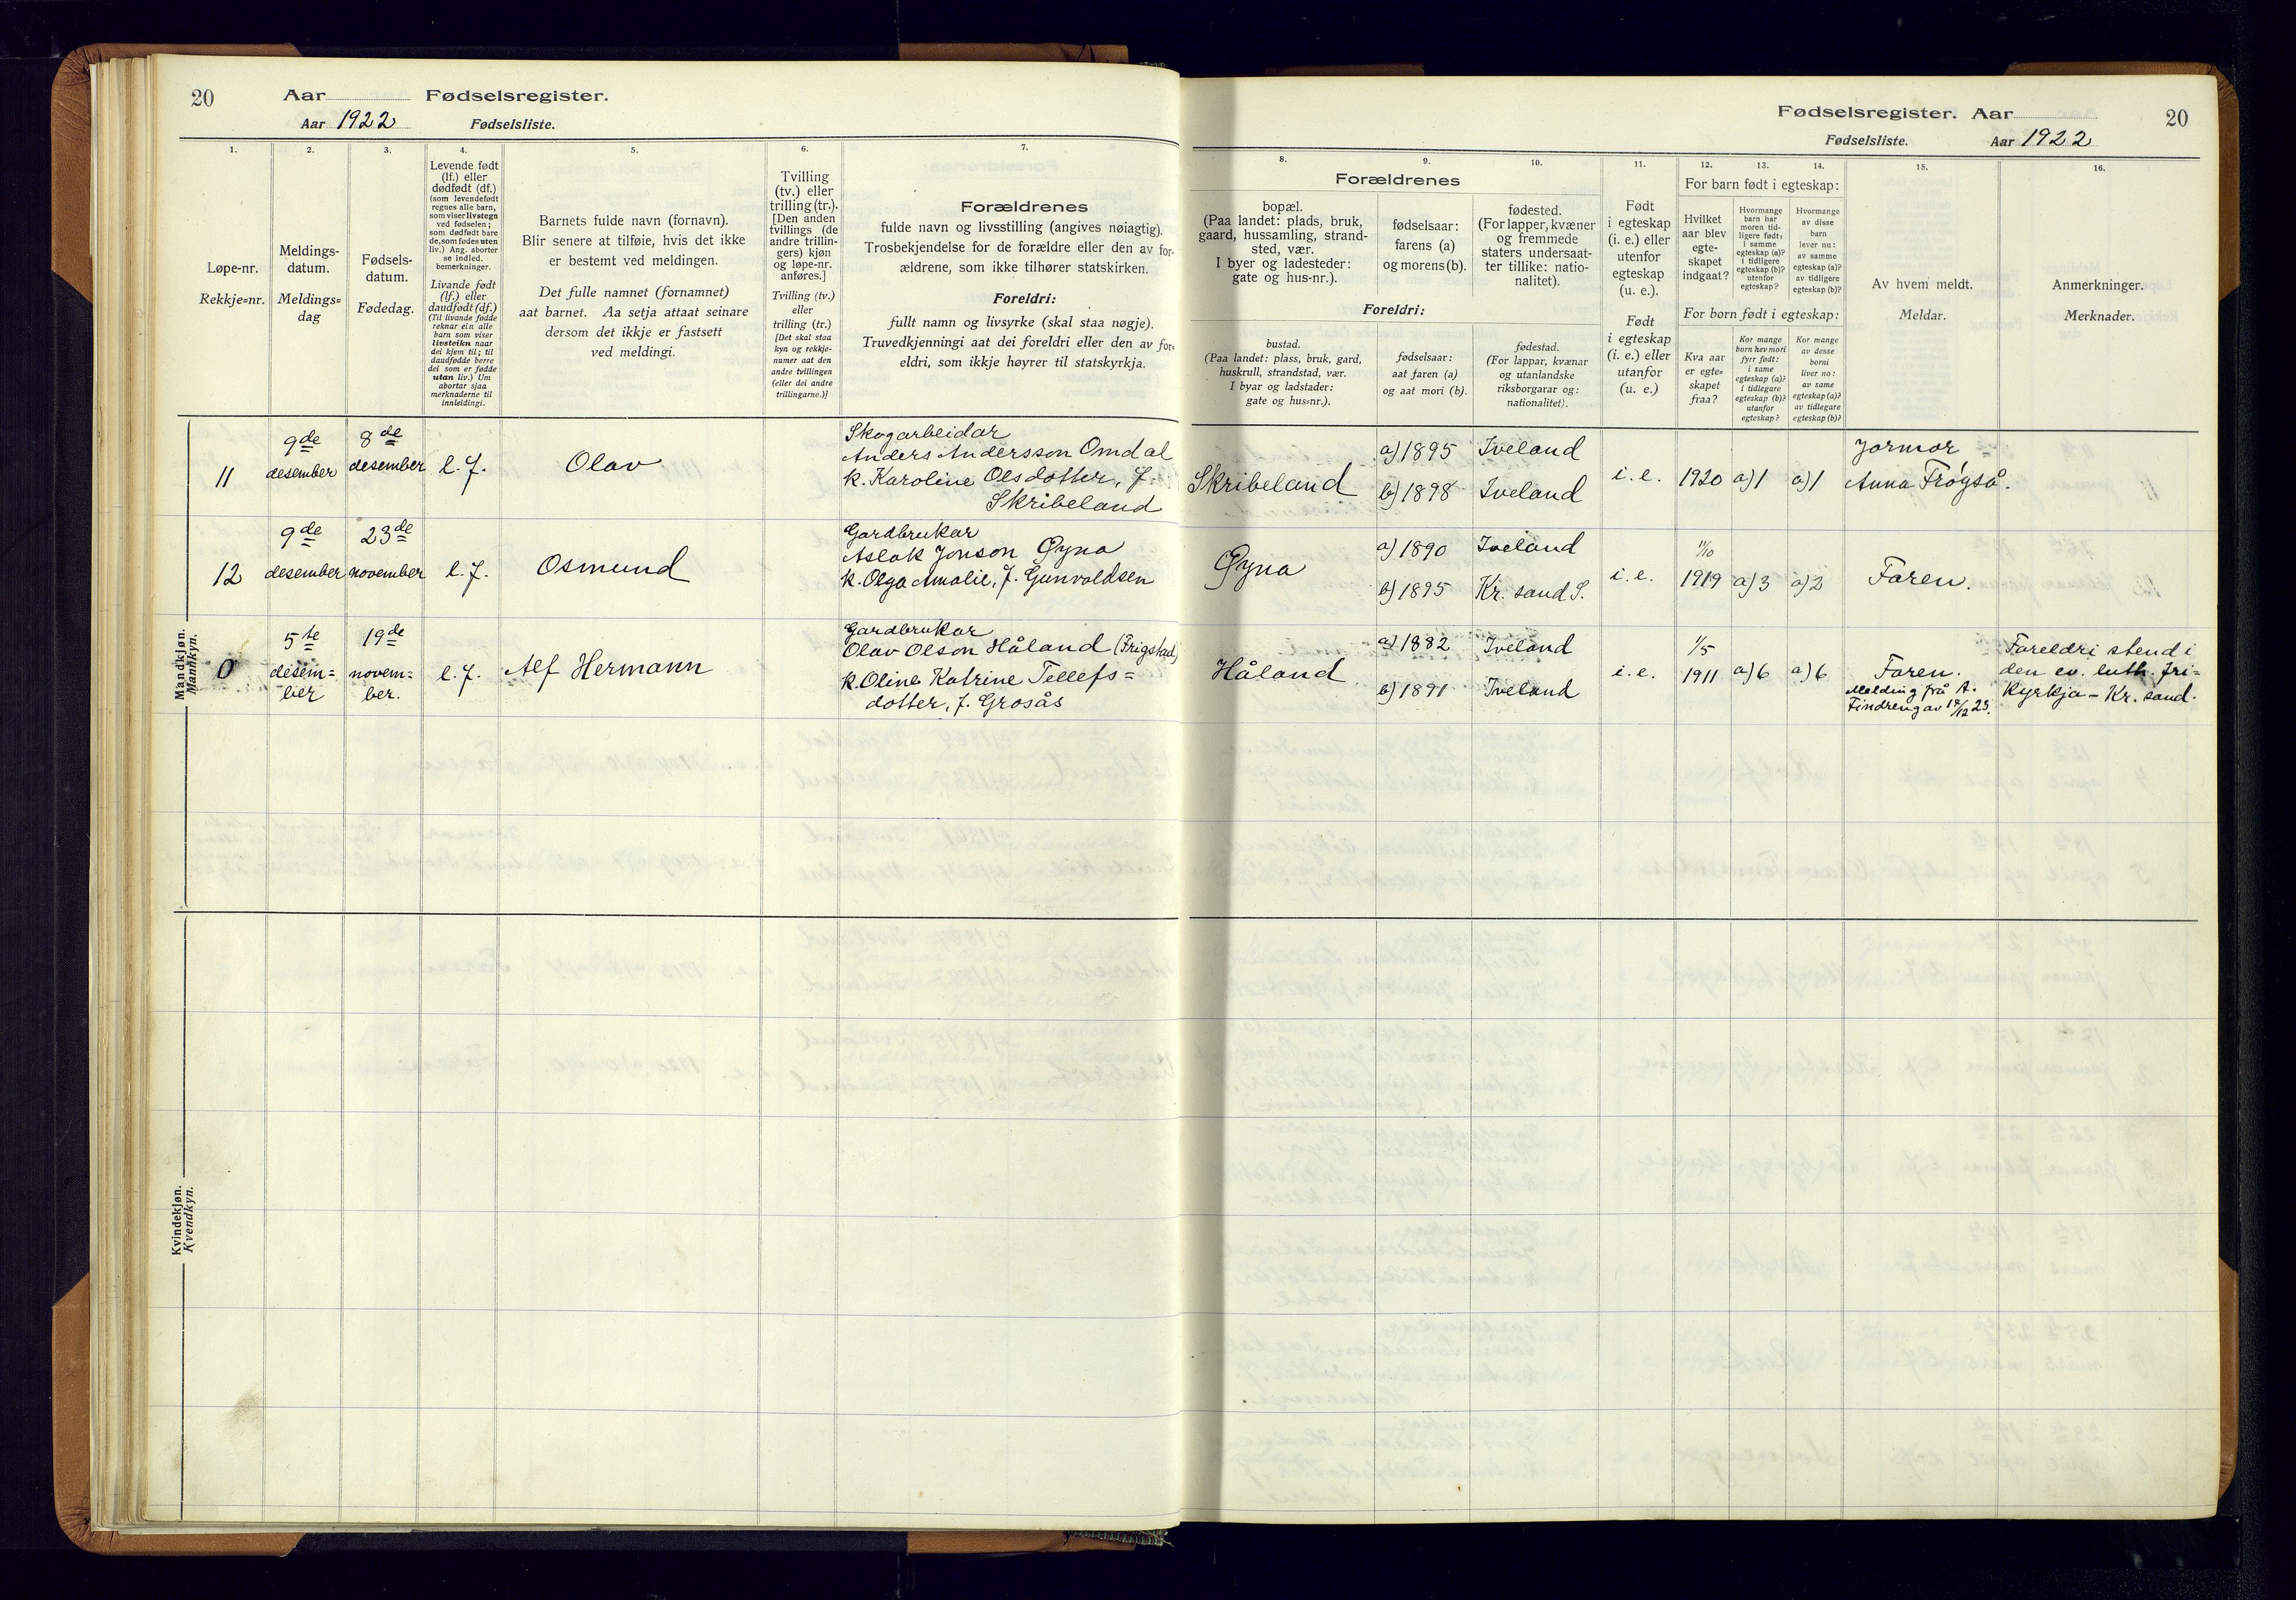 20
Aar Fødselsregister.
Aar 1922 Fødselsliste.
1.
Løpe-nr.
Rekkje=nr.
2.
Meldings-
datum.
Meldings=
dag
3.
Fødsels-
datum.
Fødedag.
4.
Levende født
(lf.) eller
dødfødt (df.)
(som levendefødt
regnes alle barn,
som viser livstegn
ved fødselen;
som dødfødt bare
de, som fødes uten
liv.) Ang. aborter
se indled.
bemerkninger.
Livande født
(lf.) eller
daudfødt (df.)
(Til livande fødde
reknar ein alle
barn som viser
livsteikn naar
dei kjem til; til
daudfødde berre
dei som er fødde
utan liv.) Um
abortar sjaa
merknaderne til
innleidingi.
5.
Barnets fulde navn (fornavn).
Blir senere at tilføie, hvis det ikke
er bestemt ved meldingen.
Det fulle namnet (fornamnet)
aat barnet. Aa setja attaat seinare
dersom det ikkje er fastsett
ved meldingi.
6.
Tvilling
(tv.) eller
trilling (tr.).
[Den anden
tvillings (de
andre trillin-
gers) kjøn
og løpe-nr.
anføres.]
Tvilling (tv.)
eller
trilling (tr.)
[Det skal staa
kyn og rekkje-
numer aat den
andre tvillingen
(eller dei andre
trillingarne.)]
7.
Forældrenes
fulde navn og livsstilling (angives nøiagtig).
Trosbekjendelse for de forældre eller den av for-
ældrene, som ikke tilhører statskirken.
Foreldri:
fullt namn og livsyrke (skal staa nøgje).
Truvedkjenningi aat dei foreldri eller den av for-
eldri, som ikkje høyrer til statskyrkja.
Mandkjøn.
Mannkyn.
11
9de
desember
8de
desember
l.f.
Olav
Skogarbeidar
Anders Andersson Omdal
k. Karoline Olsdotter, f.
Skribeland
12
9de
desember
23de
november
l.f.
Osmund
Gardbrukar
Aslak Jonson Øyna
k. Olga Amalie, f. Gunvaldsen
0
5te
desem=
ber
19de
novem=
ber.
l.f.
Alf Hermann
Gardbrukar
Olav Olson Håland (Frigstad)
k. Oline Katrine Tellefs=
dotter, f. Grosås
Kvindekjøn.
Kvendkyn.
Fødselsregister. Aar
20
Fødselsliste. Aar 1922
8.
Forældrenes
bopæl.
(Paa landet: plads, bruk,
gaard, hussamling, strand-
sted, vær.
I byer og ladesteder:
gate og hus-nr.).
Foreldri:
bustad.
(Paa landet: plass, bruk, gard,
huskrull, strandstad, vær.
I byar og ladstader:
gate og hus=nr.).
9.
fødselsaar:
farens (a)
og morens (b).
fødselsaar:
aat faren (a)
og aat mori (b).
10.
fødested.
(For lapper, kvæner
og fremmede
staters undersaat-
ter tillike: natio-
nalitet).
fødestad.
(For lappar, kvænar
og utanlandske
riksborgarar og:
nationalitet).
11.
Født
i egteskap
(i. e.) eller
utenfor
egteskap
(u. e.).
Født
i egteskap
(i. e.) eller
utanfor
(u. e.)
12.
For barn født i egteskap:
Hvilket
aar blev
egte-
skapet
indgaat?
For born født i egteskap:
Kva aar
er egte=
skapet
fraa?
13.
Hvormange
barn har
moren tid-
ligere født:
i samme
egteskap (a)?
i tidligere
egteskap (b)?
utenfor
egteskap?
Kor mange
born hev mori
fyrr født:
i same
egteskap (a)?
i tidlegare
egteskap (b)?
utanfor
egteskap?
14.
Hvormange
av disse
barn
lever nu:
av samme
egteskap (a)?
av tidligere
egteskap (b)?
Kor mange
av desse
borni
liver no:
av same
egteskap (a)?
av tidlegare
egteskap (b)?
15.
Av hvem meldt.
Meldar.
16.
Anmerkninger.
Merknader.
Skribeland
a) 1895
b) 1898
Iveland
Iveland
i. e.
1920
a) 1
a) 1
Jormor
Anna Frøyså.
Øyna
a) 1890
b) 1895
Iveland
Kr. sand S.
i. e.
11/10
1919
a) 3
a) 2
Faren.
Håland
a) 1882
b) 1891
Iveland
Iveland
i. e.
1/5
1911
a) 6
a) 6
Faren.
Melding frå A.
Foreldri stend i
den ev. luth. fri=
kyrkja - Kr. sand.